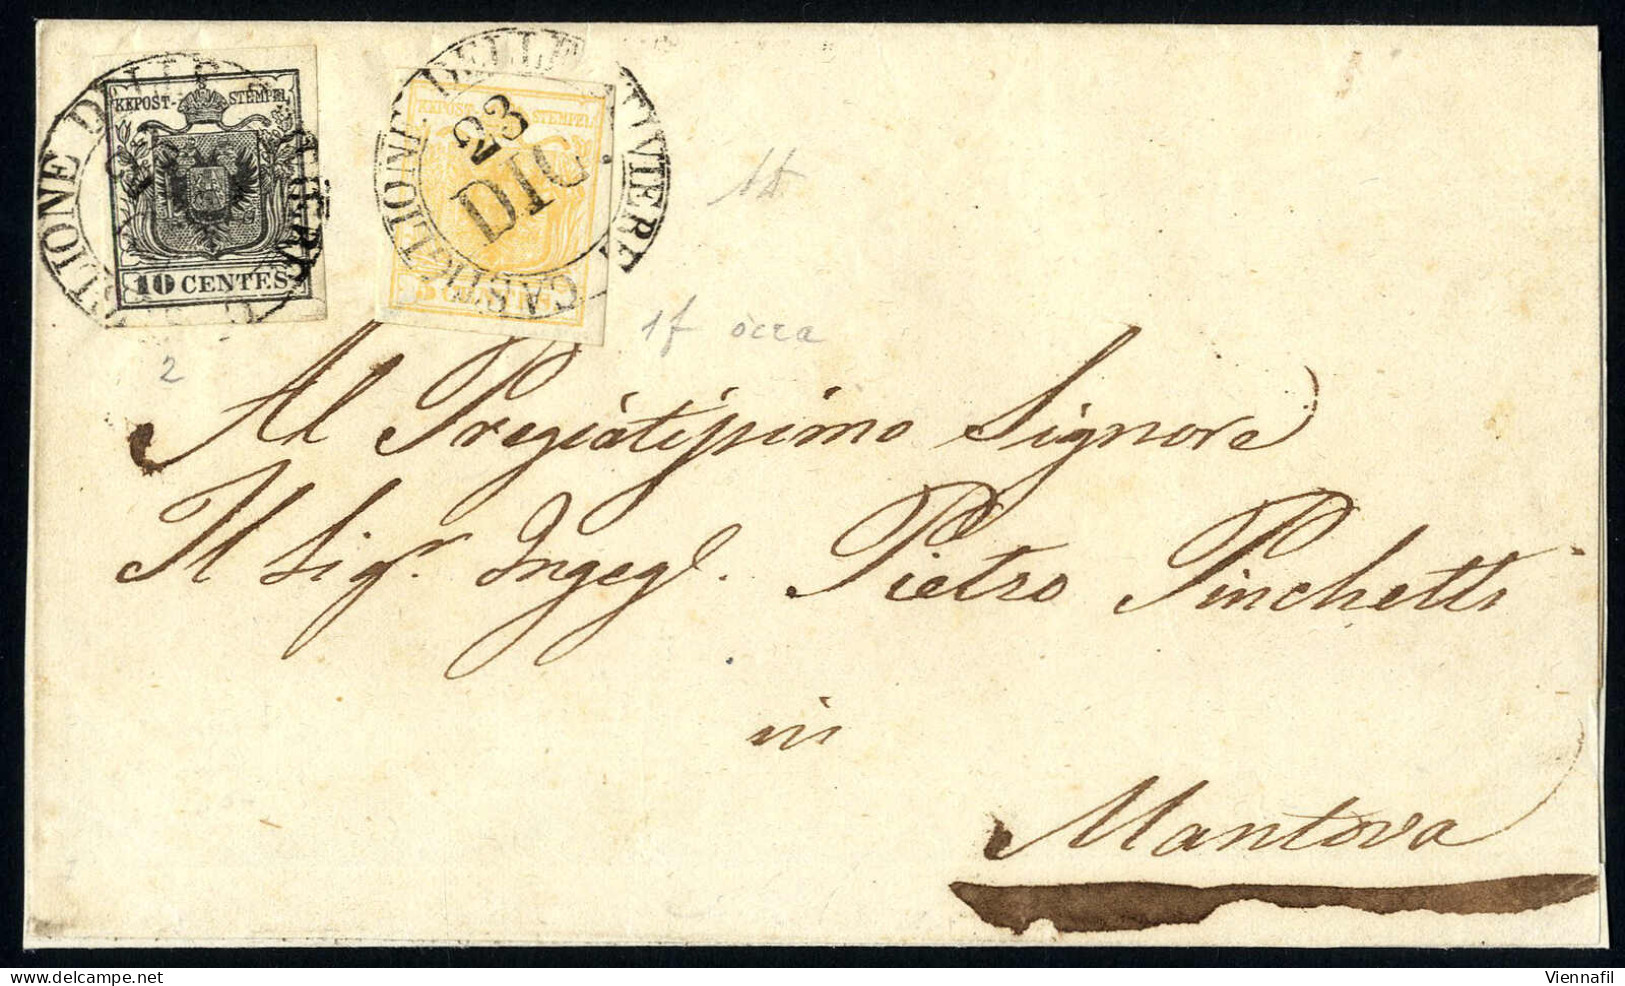 KKPOST-STEMPEL
10 CENTES
KKPOST-STEMPEL
CASTIGLIONE DELLE STIVIERE
23
DIC
1f ocra
2
Al Pregiatissimo Signore
Il Sigr. Ingegl. Pietro Pinchetti
in
Mantova
Viennafil